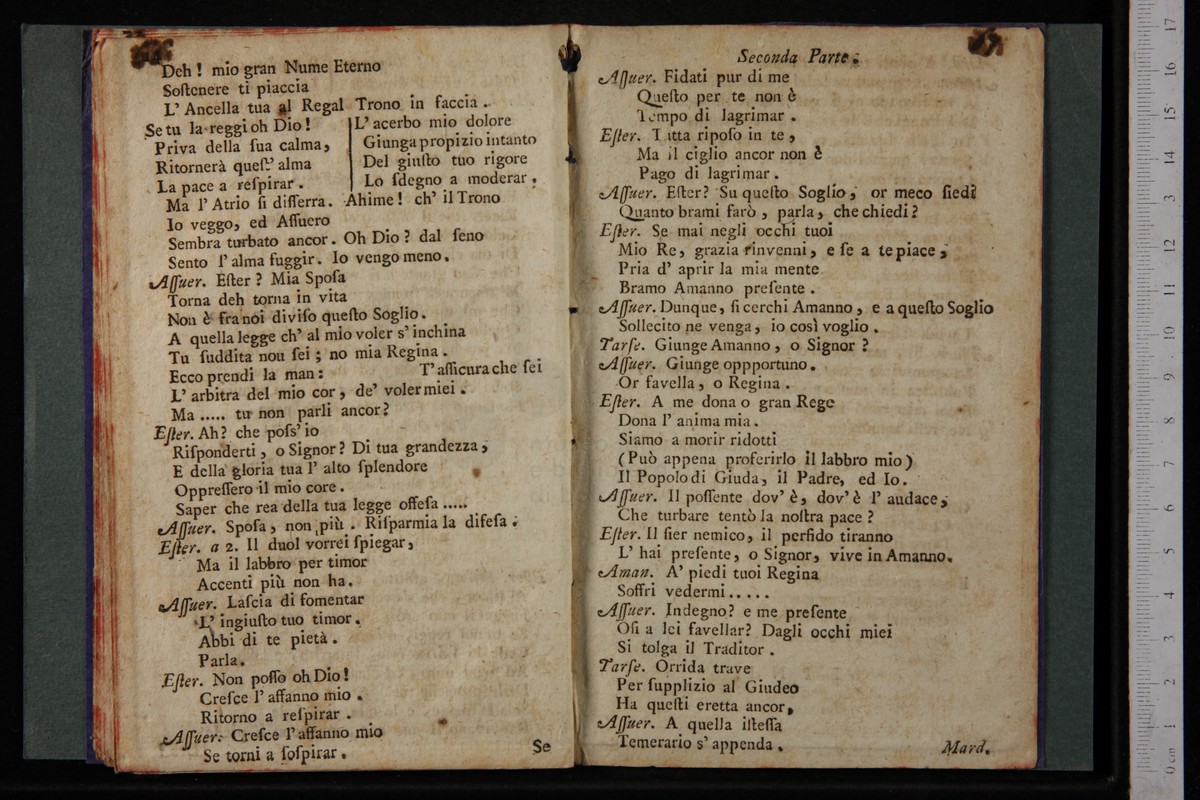 Deh! mio gran Nume Eterno
Soſtenere ti piaccia
L' Ancella tua al Regal Trono in faccia.
Se tu la reggi oh Dio!
Priva della ſua calma,
Ritornerà queſt' alma
La pace a reſpirar.
L' acerbo mio dolore
Giunga propizio intanto
Del giuſto tuo rigore
Lo ſdegno a moderar.
Ma l' Atrio ſi diſſerra. Ahime! ch' il Trono
Io veggo, ed Aſſuero
Sembra turbato ancor. Oh Dio? dal ſeno
Sento l' alma fuggir. Io vengo meno.
Aſſuer. Eſter? Mia Spoſa
Torna deh torna in vita
Non è fra noi diviſo queſto Soglio.
A quella legge ch' al mio voler s' inchina
Tu ſuddita non ſei; no mia Regina.
Ecco prendi la man: T' aſſicura che ſei
L' arbitra del mio cor, de' voler miei.
Ma ..... tu non parli ancor?
Eſter. Ah? che poſs' io
Riſponderti, o Signor? Di tua grandezza,
E della gloria tua l' alto ſplendore
Oppreſſero il mio core.
Saper che rea della tua legge offeſa .....
Aſſuer. Spoſa, non più. Riſparmia la difeſa.
Eſter. a 2. Il duol vorrei ſpiegar,
Ma il labbro per timor
Accenti più non ha.
Aſſuer. Laſcia di fomentar
L' ingiuſto tuo timor.
Abbi di te pietà.
Parla.
Eſter. Non poſſo oh Dio!
Creſce l' affanno mio.
Ritorno a reſpirar.
Aſſuer. Creſce l' affanno mio
Se torni a ſoſpirar.
Se
Seconda Parte.
Aſſuer. Fidati pur di me
Queſto per te non è
Tempo di lagrimar.
Eſter. Tutta ripoſo in te,
Ma il ciglio ancor non è
Pago di lagrimar.
Aſſuer. Eſter? Su queſto Soglio, or meco ſiedi
Quanto brami farò, parla, che chiedi?
Eſter. Se mai negli occhi tuoi
Mio Re, grazia rinvenni, e ſe a te piace,
Pria d' aprir la mia mente
Bramo Amanno preſente.
Aſſuer. Dunque, ſi cerchi Amanno, e a queſto Soglio
Sollecito ne venga, io così voglio.
Tarſe. Giunge Amanno, o Signor?
Aſſuer. Giunge oppportuno.
Or favella, o Regina.
Eſter. A me dona o gran Rege
Dona l' anima mia.
Siamo a morir ridotti
(Può appena proferirlo il labbro mio)
Il Popolo di Giuda, il Padre, ed Io.
Aſſuer. Il poſſente dov' è, dov' è l' audace,
Che turbare tentò la noſtra pace?
Eſter. Il fier nemico, il perfido tiranno
L' hai preſente, o Signor, vive in Amanno.
Aman. A' piedi tuoi Regina
Soffri vedermi.....
Aſſuer. Indegno? e me preſente
Oſi a lei favellar? Dagli occhi miei
Si tolga il Traditor.
Tarſe. Orrida trave
Per ſupplizio al Giudeo
Ha queſti eretta ancor,
Aſſuer. A quella iſteſſa
Temerario s' appenda.
Mard.